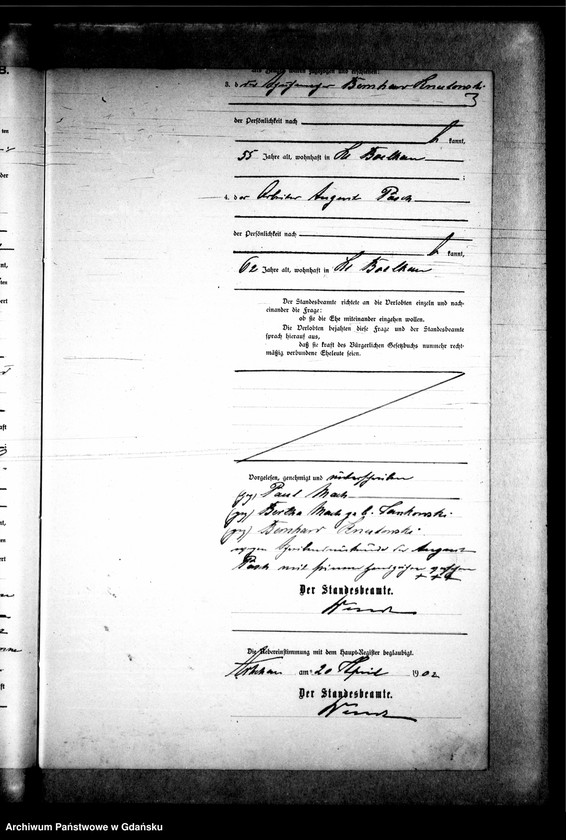 3. der Bernhard
3
der Persönlichkeit nach
kannt,
55 Jahre alt, wohnhaft in Kl Boelkau
;
4. der Arbeiter August Pasch
der Persönlichkeit nach
kannt,
62 Jahre alt, wohnhaft in Kl Boelkau
Der Standesbeamte richtete an die Verlobten einzeln und nach-
einander die Frage:
ob sie die Ehe miteinander eingehen wollen.
Die Verlobten bejahten diese Frage und der Standesbeamte
sprach hierauf aus,
daß sie kraft des Bürgerlichen Gesetzbuchs nunmehr recht-
mäßig verbundene Eheleute seien.
Vorgelesen, genehmigt und unterschrieben
(gez) Paul Mach
(gez) Bertha Mach geb. Lankowski
(gez) Bernhard
wegen Schreibensunkunde des August
Pasch mit seinem Handzeichen versehen
+++
Der Standesbeamte.
Die Uebereinstimmung mit dem Haupt-Register beglaubigt.
am 20 April 1902
Der Standesbeamte.
Archiwum Państwowe w Gdańsku